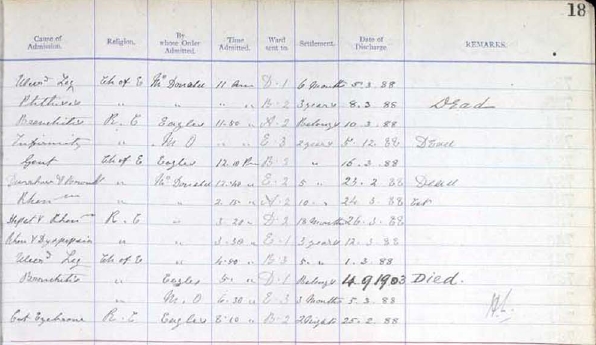 18
Cause of Admission. Religion. By whose Order Admitted. Time Admitted. Ward sent to. Settlement. Date of Discharge REMARKS.
Ulcerd Leg Ch of E McDonald 11 am D.1 6 months 5.3.88
Phthisis " " " " B.2 3 years 8.3.88 Dead
Bronchitis R.C Eagles 11.50 " A.2 Belongs 10.3.88
Infirmity " M.O " E.3 2 years 5.12.88 Dead
Gout Ch of E Eagles B.3 " 16.3.88
" McDonald 12.40 " E.2 5 " 23.2.88 Dead
Rheum " " 2.15 " A.2 10 " 24.3.88
R.C " 3.20 " D.3 18 months 26.3.88
Rheu & Dyspepsia " " 3.30 " E.1 3 years 12.3.88
Ulcerd Leg Ch of E " 4.40 " B.3 5 " 1.3.88
Bronchitis " Eagles 5 " D.1 Belongs 4 9 1903 Died.
" " M.O 6.30 " E.3 3 Months 5.3.88
R.C Eagles 8.10 " B.2 25.2.88